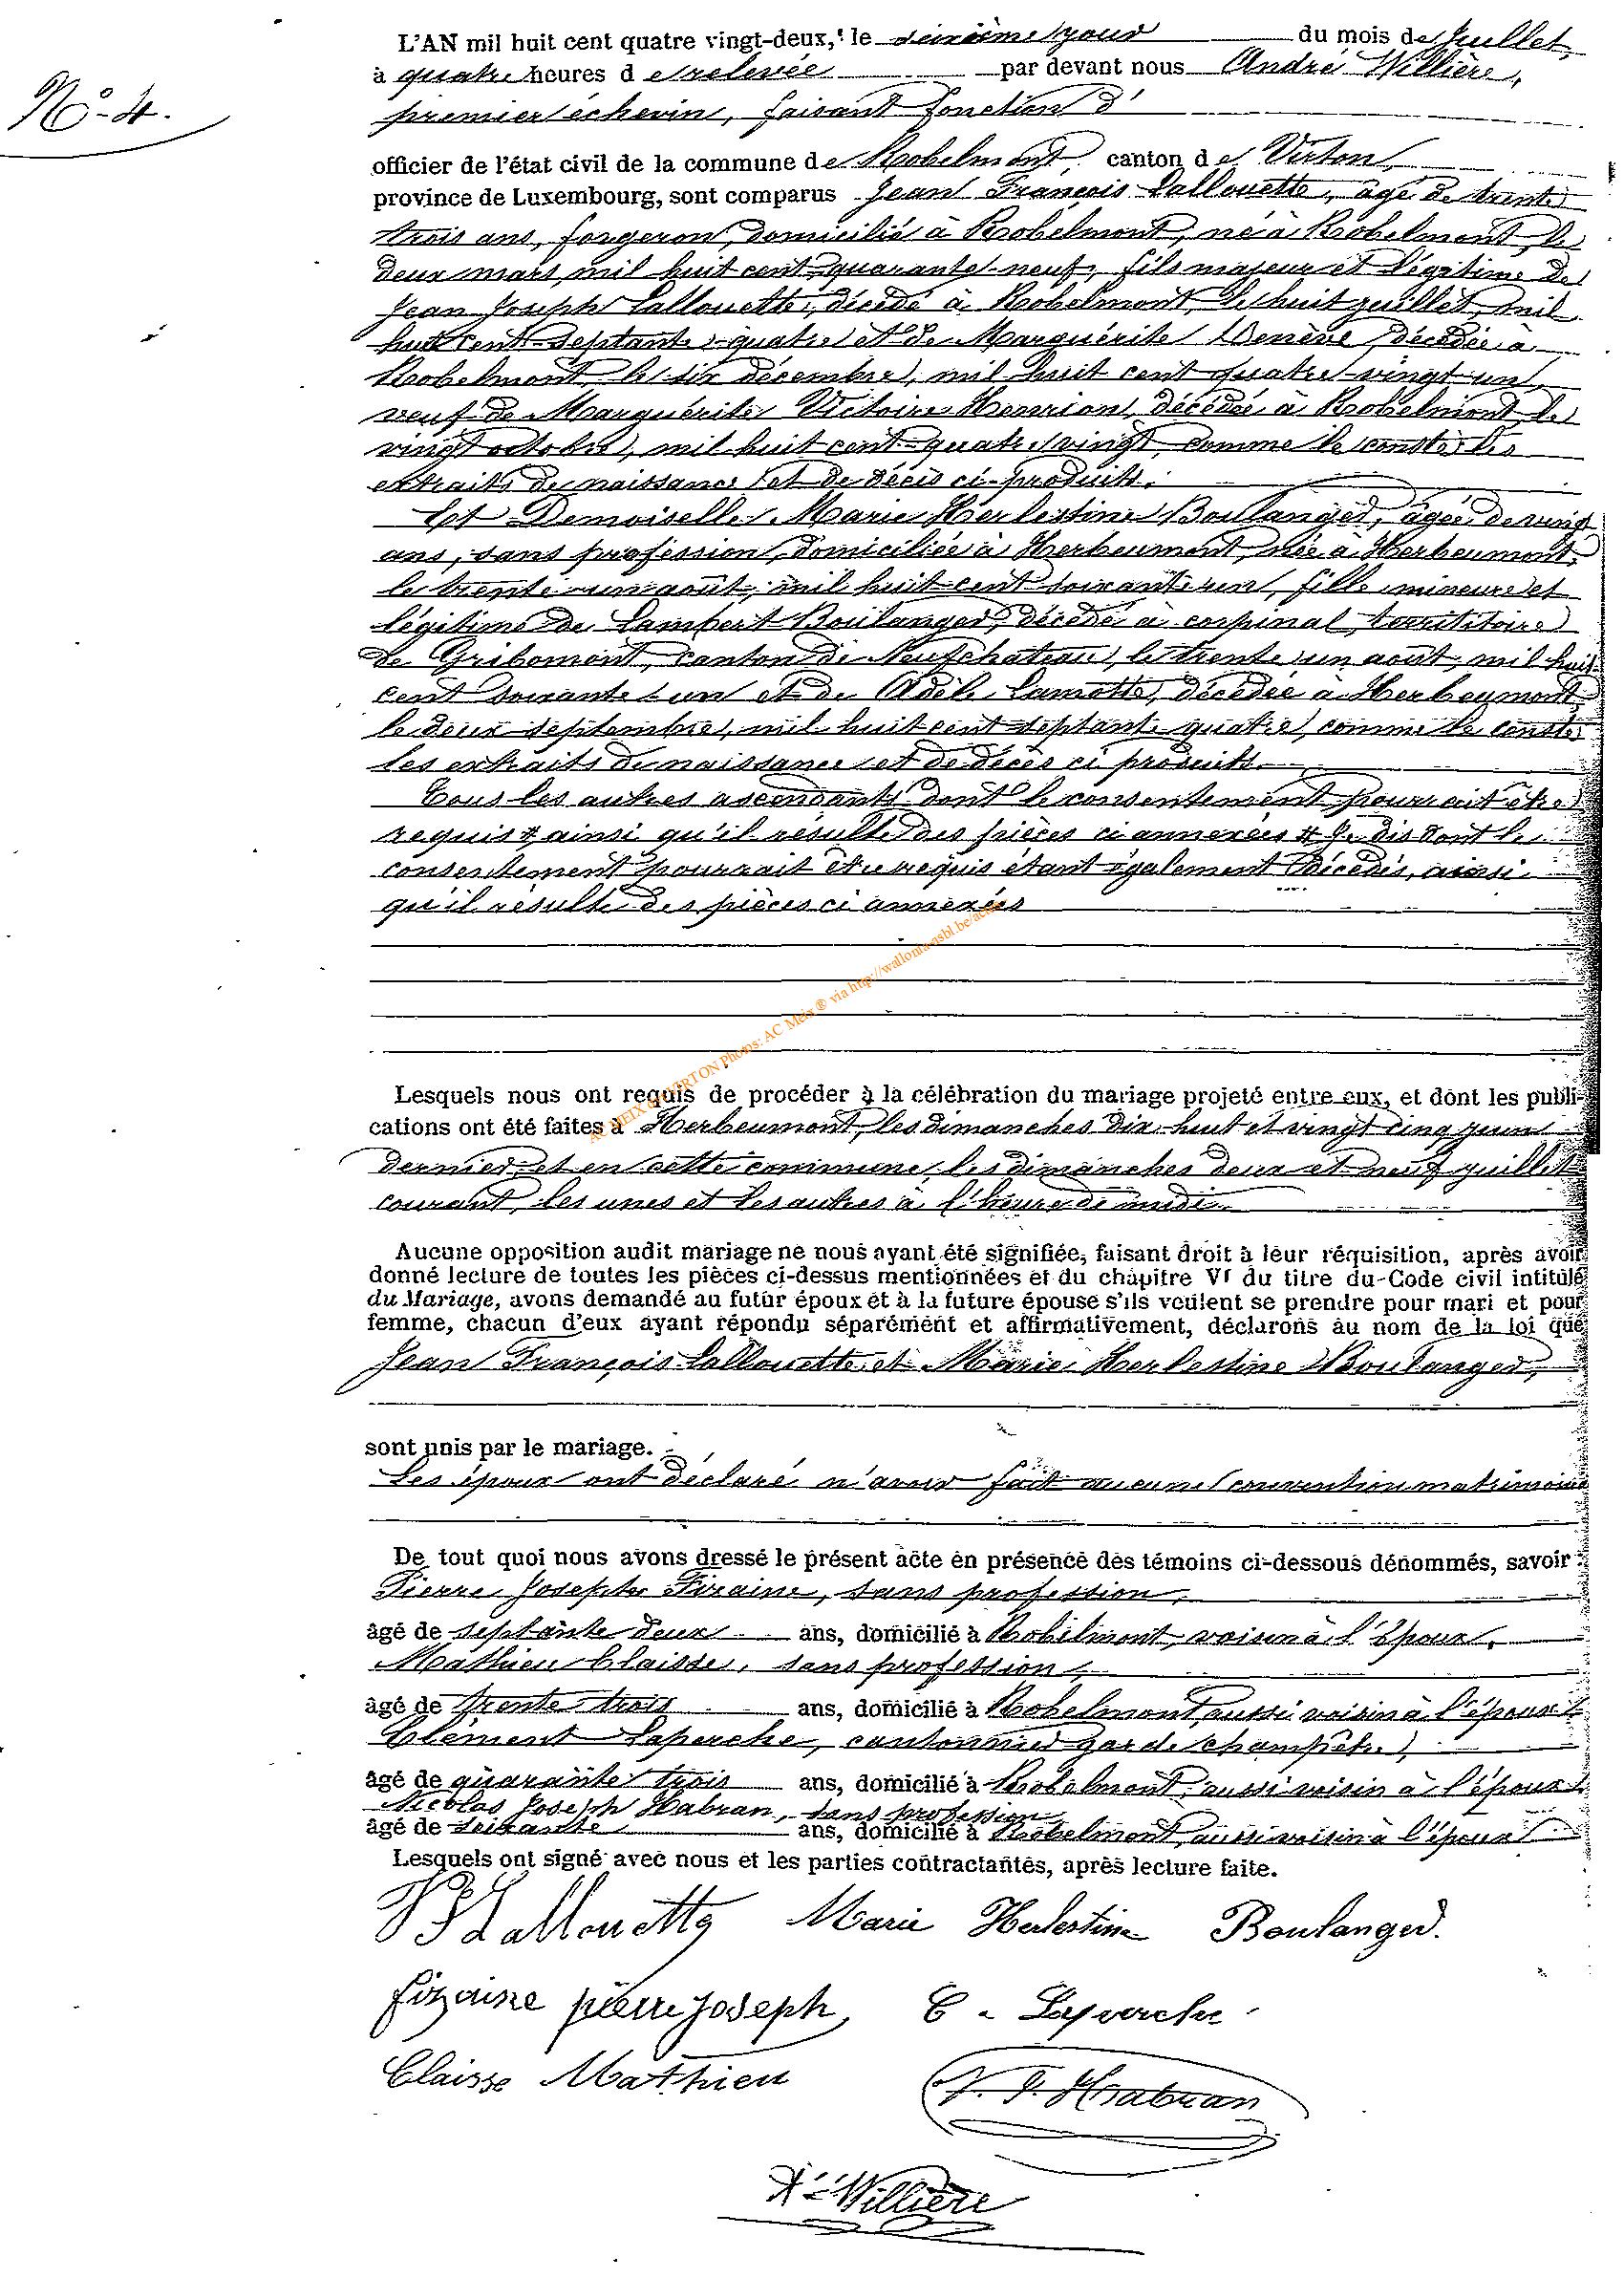 L'AN mil huit cent quatre vingt-deux, le seizième jour du mois de juillet,
N° 4.
à quatre heures de relevée par devant nous André Willière,
premier échevin, faisant fonction d'
officier de l'état civil de la commune de Robelmont, canton de Virton,
province de Luxembourg, sont comparus Jean François Lallouette, âgé de trente
trois ans, forgeron, domicilié à Robelmont, né à Robelmont, le
deux mars, mil huit cent quarante-neuf, fils majeur et légitime de
Jean Joseph Lallouette, décédé à Robelmont, le huit juillet, mil
huit cent septante-quatre et de Marguérite Denève, décédée à
Robelmont, le six décembre, mil huit cent quatre vingt un,
veuf de Marguérite Victoire Henrion, décédée à Robelmont, le
vingt octobre, mil huit cent quatre vingt, comme le conste les
extraits de naissance et de décès ci-produits.
Et Demoiselle Marie Herlestine Boulanger, âgée de vingt
ans, sans profession, domiciliée à Herbeumont, née à Herbeumont,
le trente un août, mil huit cent soixante un, fille mineure et
légitime de Lambert Boulanger, décédé à corpinal, territitoire
de Gribomont, canton de Neufchâteau, le trente un août, mil huit
cent soixante-un et de Adèle Lamotte, décédée à Herbeumont,
le deux septembre, mil huit cent septante quatre, comme le conste
les extraits de naissance et de décès ci produits.
Tous les autres ascendants dont le consentement pourrait être
requis, ainsi qu'il résulte des pièces ci annexées # Je dis dont le
consentement pourrait être requis étant également décédés, ainsi
qu'il résulte des pièces ci annexées
AC MEIX dt VIRTON Photos: AC Meix ® via http://wallonia-asbl.be/actes
Lesquels nous ont requis de procéder à la célébration du mariage projeté entre eux, et dont les publi-
cations ont été faites à Herbeumont, les dimanches dix huit et vingt cinq juin
dernier, et en cette commune, les dimanches deux et neuf juillet
courant, les unes et les autres à l'heure de midi.
Aucune opposition audit mariage ne nous ayant été signifiée, faisant droit à leur réquisition, après avoir
donné lecture de toutes les pièces ci-dessus mentionnées et du chapitre VI du titre du Code civil intitulé
du Mariage, avons demandé au futur époux et à la future épouse s'ils veulent se prendre pour mari et pour
femme, chacun d'eux ayant répondu séparément et affirmativement, déclarons au nom de la loi que
Jean François Lallouette et Marie Herlestine Boulanger,
sont unis par le mariage.
Les époux ont déclaré n'avoir fait aucune convention matrimoniale
De tout quoi nous avons dressé le présent acte en présence des témoins ci-dessous dénommés, savoir :
Pierre Joseph Fizaine, sans profession,
âgé de septante deux ans, domicilié à Robelmont, voisin à l'époux,
Mathieu Claisse, sans profession,
âgé de trente trois ans, domicilié à Robelmont, aussi voisin à l'époux
Clément Laperche, cantonnier garde champêtre,
âgé de quarante trois ans, domicilié à Robelmont, aussi voisin à l'époux
Nicolas Joseph Habran, sans profession
âgé de soixante ans, domicilié à Robelmont, aussi voisin à l'époux
Lesquels ont signé avec nous et les parties contractantes, après lecture faite.
Lallouette Marie Herlestine Boulanger.
fizaine pierre Joseph C. Laperche
Claisse Mathieu N. J. Habran
Willière